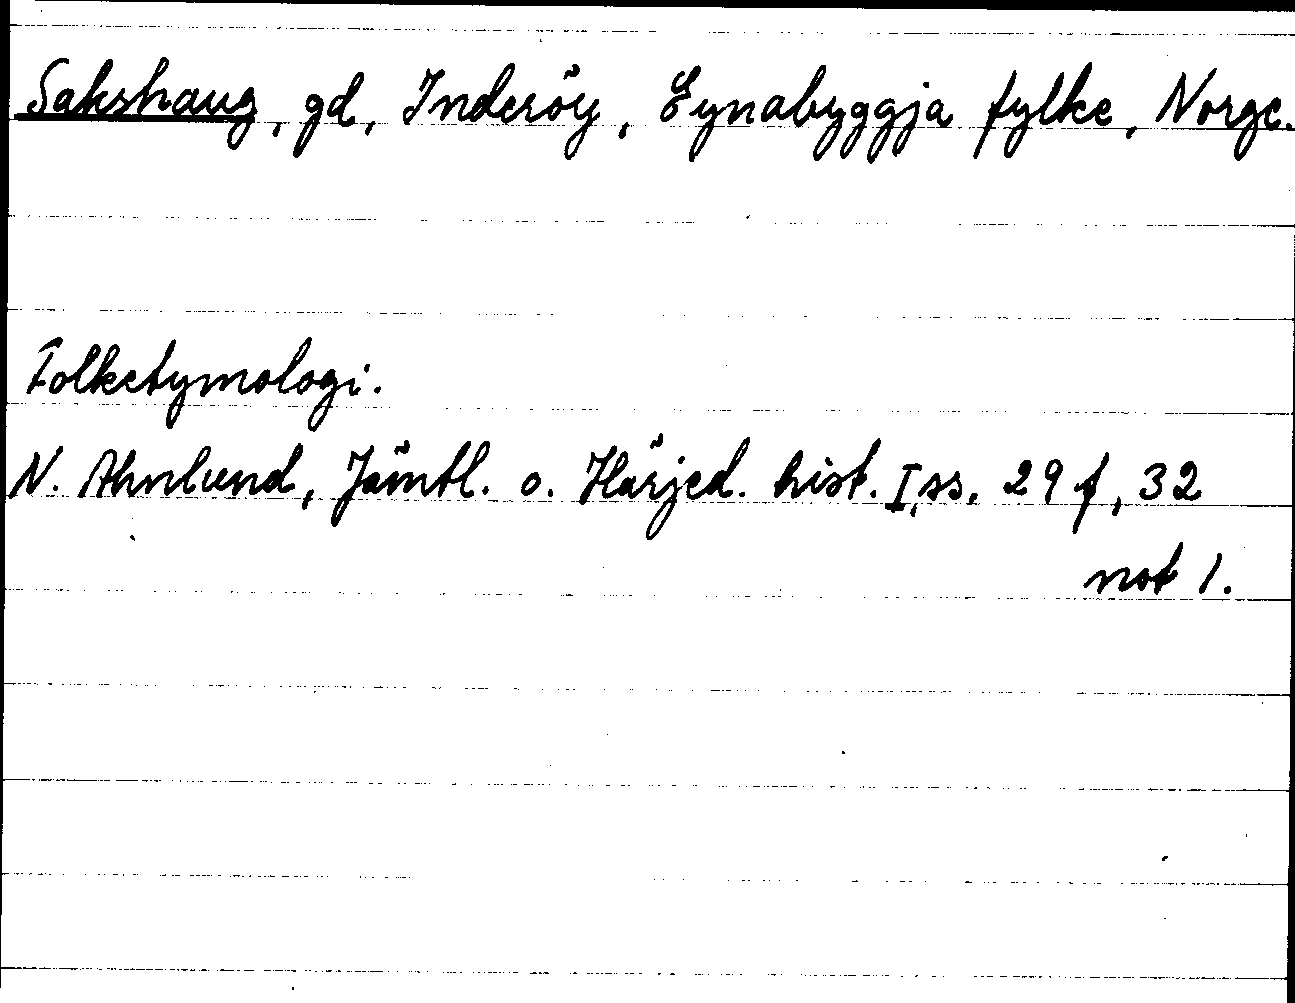 Sakshaug, gd, Inderöy, Eynabyggja fylke, Norge.
Folketymologi.
N. Ahnlund, Jämtl. o. Härjed. hist. I, ss. 29 f, 32
not 1.